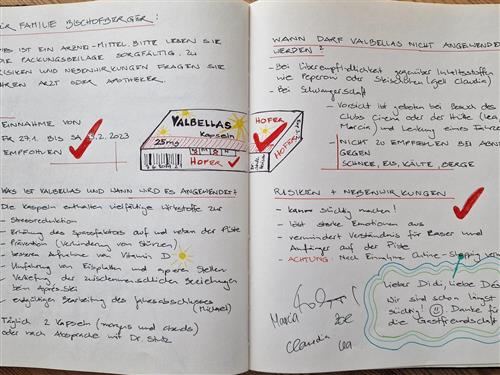 FÜR FAMILIE BISCHOFBERGER:
DIES IST EIN ARZNE-MITTEL. BITTE LESEN SIE
DIE PACKUNGSBEILAGE SORGFÄLTIG. ZU
RISIKEN UND NEBENWIRKUNGEN FRAGEN SIE
IHREN ARZT ODER APOTHEKER.
EINNAHME VON
FR 27.1. BIS SA 5.2.2023
EMPFOHLEN
VALBELLAS
Kapseln
25mg
HOFER
HOFER
HOFER
WAS IST VALBELLAS UND WANN WIRD ES ANGEWENDET?
Die Kapseln enthalten vielfältige Wirkstoffe zur
- Stressreduktion
- Erhöhung des Spassfaktors auf und neben der Piste
- Prävention (Verhinderung von Stürzen)
- besseren Aufnahme von Vitamin D
- Umfahrung von Eisplatten und aperen Stellen
- Vertiefung der zwischenmenschlichen Beziehungen
beim Après-Ski
- endgültigen Bearbeitung des Jahresabschlusses
(Michael)
Täglich 2 Kapseln (morgens und abends)
oder nach Absprache mit Dr. Stutz
WANN DARF VALBELLAS NICHT ANGEWENDET
WERDEN?
- Bei Überempfindlichkeit gegenüber Inhaltsstoffen
wie Peperoni oder Fleischchäs (gell Claudia)
- Bei Schwangerschaft
- Vorsicht ist geboten bei Besuch des
Clubs Cinema oder der Hütte (Lea,
Marcia) und Lenkung eines
- NICHT ZU EMPFEHLEN BEI
GEGEN
SCHNEE, EIS, KÄLTE, BERGE
RISIKEN + NEBENWIRKUNGEN
- kann süchtig machen!
- löst starke Emotionen aus
- vermindert Verständnis für Raser und
Anfänger auf der Piste
- ACHTUNG: Nach Einnahme Online-Shopping
Marcia
Zoe
Claudia
Lea
Lieber Didi, liebe
Wir sind schon längst
süchtig! Danke für
die Gastfreundschaft